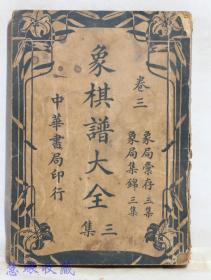 卷三
象局彙存三集
象局集錦三集
象棋譜大全
三集
中華書局印行